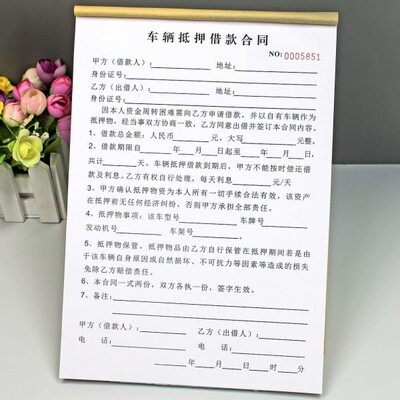 车辆抵押借款合同
NO:0005851
甲方（借款人）：____________地址：____________
身份证号：____________
乙方（出借人）：____________地址：____________
身份证号：____________
因本人资金周转困难需向乙方申请借款，并以自有车辆作为
抵押物，经当事双方协商一致，乙方同意出借并签订本合同内容。
1、借款总金额：人民币______元，大写____________元整。
2、借款期限自______年____月____日起至____年____月____日，
共计______天。车辆抵押借款到期后，甲方不能按时偿还借
款及利息。乙方有权自行处理，每天利息______元/天
3、甲方确认抵押物资为本人所有一切手续合法有效，该资产
在抵押前无任何经济纠纷，否则甲方承担全部责任。
4、抵押物事项：该车型号____________车牌号________
发动机号____________车架号____________。
5、抵押物保管，抵押物品由乙方自行保管在抵押期间若是由
于该车辆自身原因或自然损坏、不可抗力等因素等造成的损失
免除乙方赔偿责任。
6、本合同一式两份，双方各执一份，签字生效。
7、备注：________________________
甲方（借款人）：____________乙方（出借人）：____________
电 话：____________电 话：____________
签定日期：______年____月____日____时____分